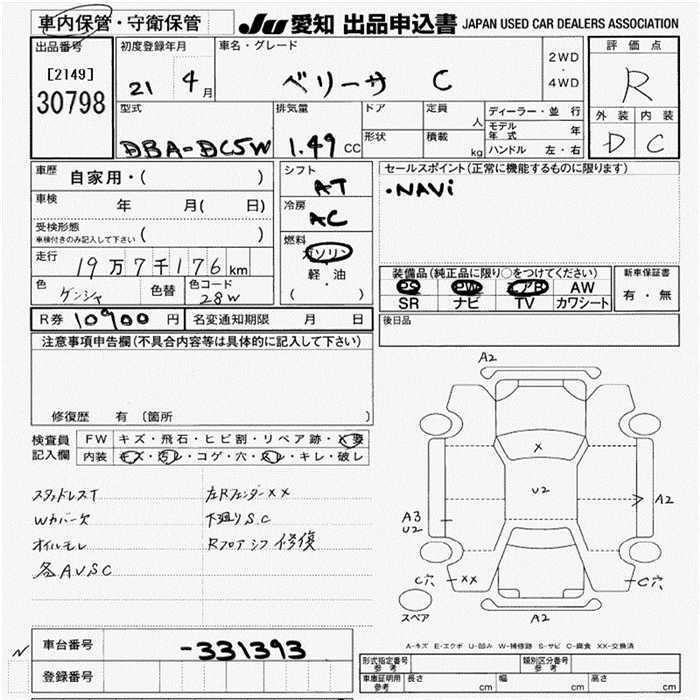 車内保管・守衛保管 JU 愛知 出品申込書 JAPAN USED CAR DEALERS ASSOCIATION
出品番号 初度登録年月 車名・グレード 2WD・4WD 評価点
[2149] 30798 21 4月 ベリーサ C R
外装 内装
D C
型式 排気量 ドア 定員 人 ディーラー・並行
DBA-DC5W 1.49 CC 形状 積載 kg モデル年式 年
ハンドル 左・右
車歴 自家用・( ) シフト AT セールスポイント(正常に機能するものに限ります)
車検 年 月( 日) 冷房 AC ・NAVi
受検形態 車検付きのみ記入して下さい ( )
燃料 ガソリン 軽・油 ( ・ )
走行 19万7千176km
色 色替 色コード 28W
装備品(純正品に限り○をつけてください) 新車保証書
PS PW エアB AW 有・無
SR ナビ TV カワシート
R券 10900円 名変通知期限 月 日 後日品
注意事項申告欄(不具合内容等は具体的に記入して下さい)
修復歴 有 〔箇所 〕
検査員記入欄 FW キズ・飛石・ヒビ割・リペア跡・X要
内装 キズ・汚レ・コゲ・穴・スレ・キレ・破レ
スタッドレスT 左Rフェンダー××
Wカバー欠 下廻りS.C
オイルモレ Rフロア 修復
各AUSC
A2
X
U2
A3 U2
A2
C穴 ××
C穴
スペア
A2
A-キズ E-エクボ U-凹み W-補修跡 S-サビ C-腐食 XX-交換済
N 車台番号 -331393
登録番号
形式指定番号 参考 類別区分番号 参考
車庫証明用 参考 長さ cm 幅 cm 高さ cm